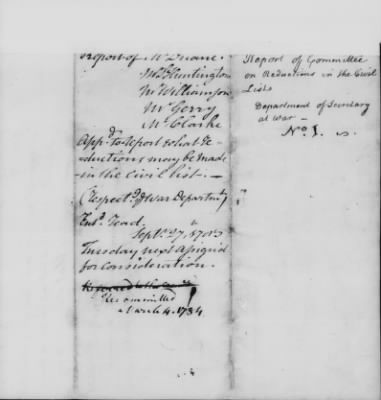 Report of Mr Duane.
Mr Huntington
Mr Williamson
Mr Gerry
Mr Clarke
Appd. to report what re-
ductions may be made
in the civil list. —
(Respectg. War Departmt)
Entd. read.
Septr. 27, 1783
Tuesday next assigned
for consideration.
Recommitted
March 4. 1784
Report of Committee
on Reductions in the Civil
Lists
Department of Secretary
at War —
No 1.